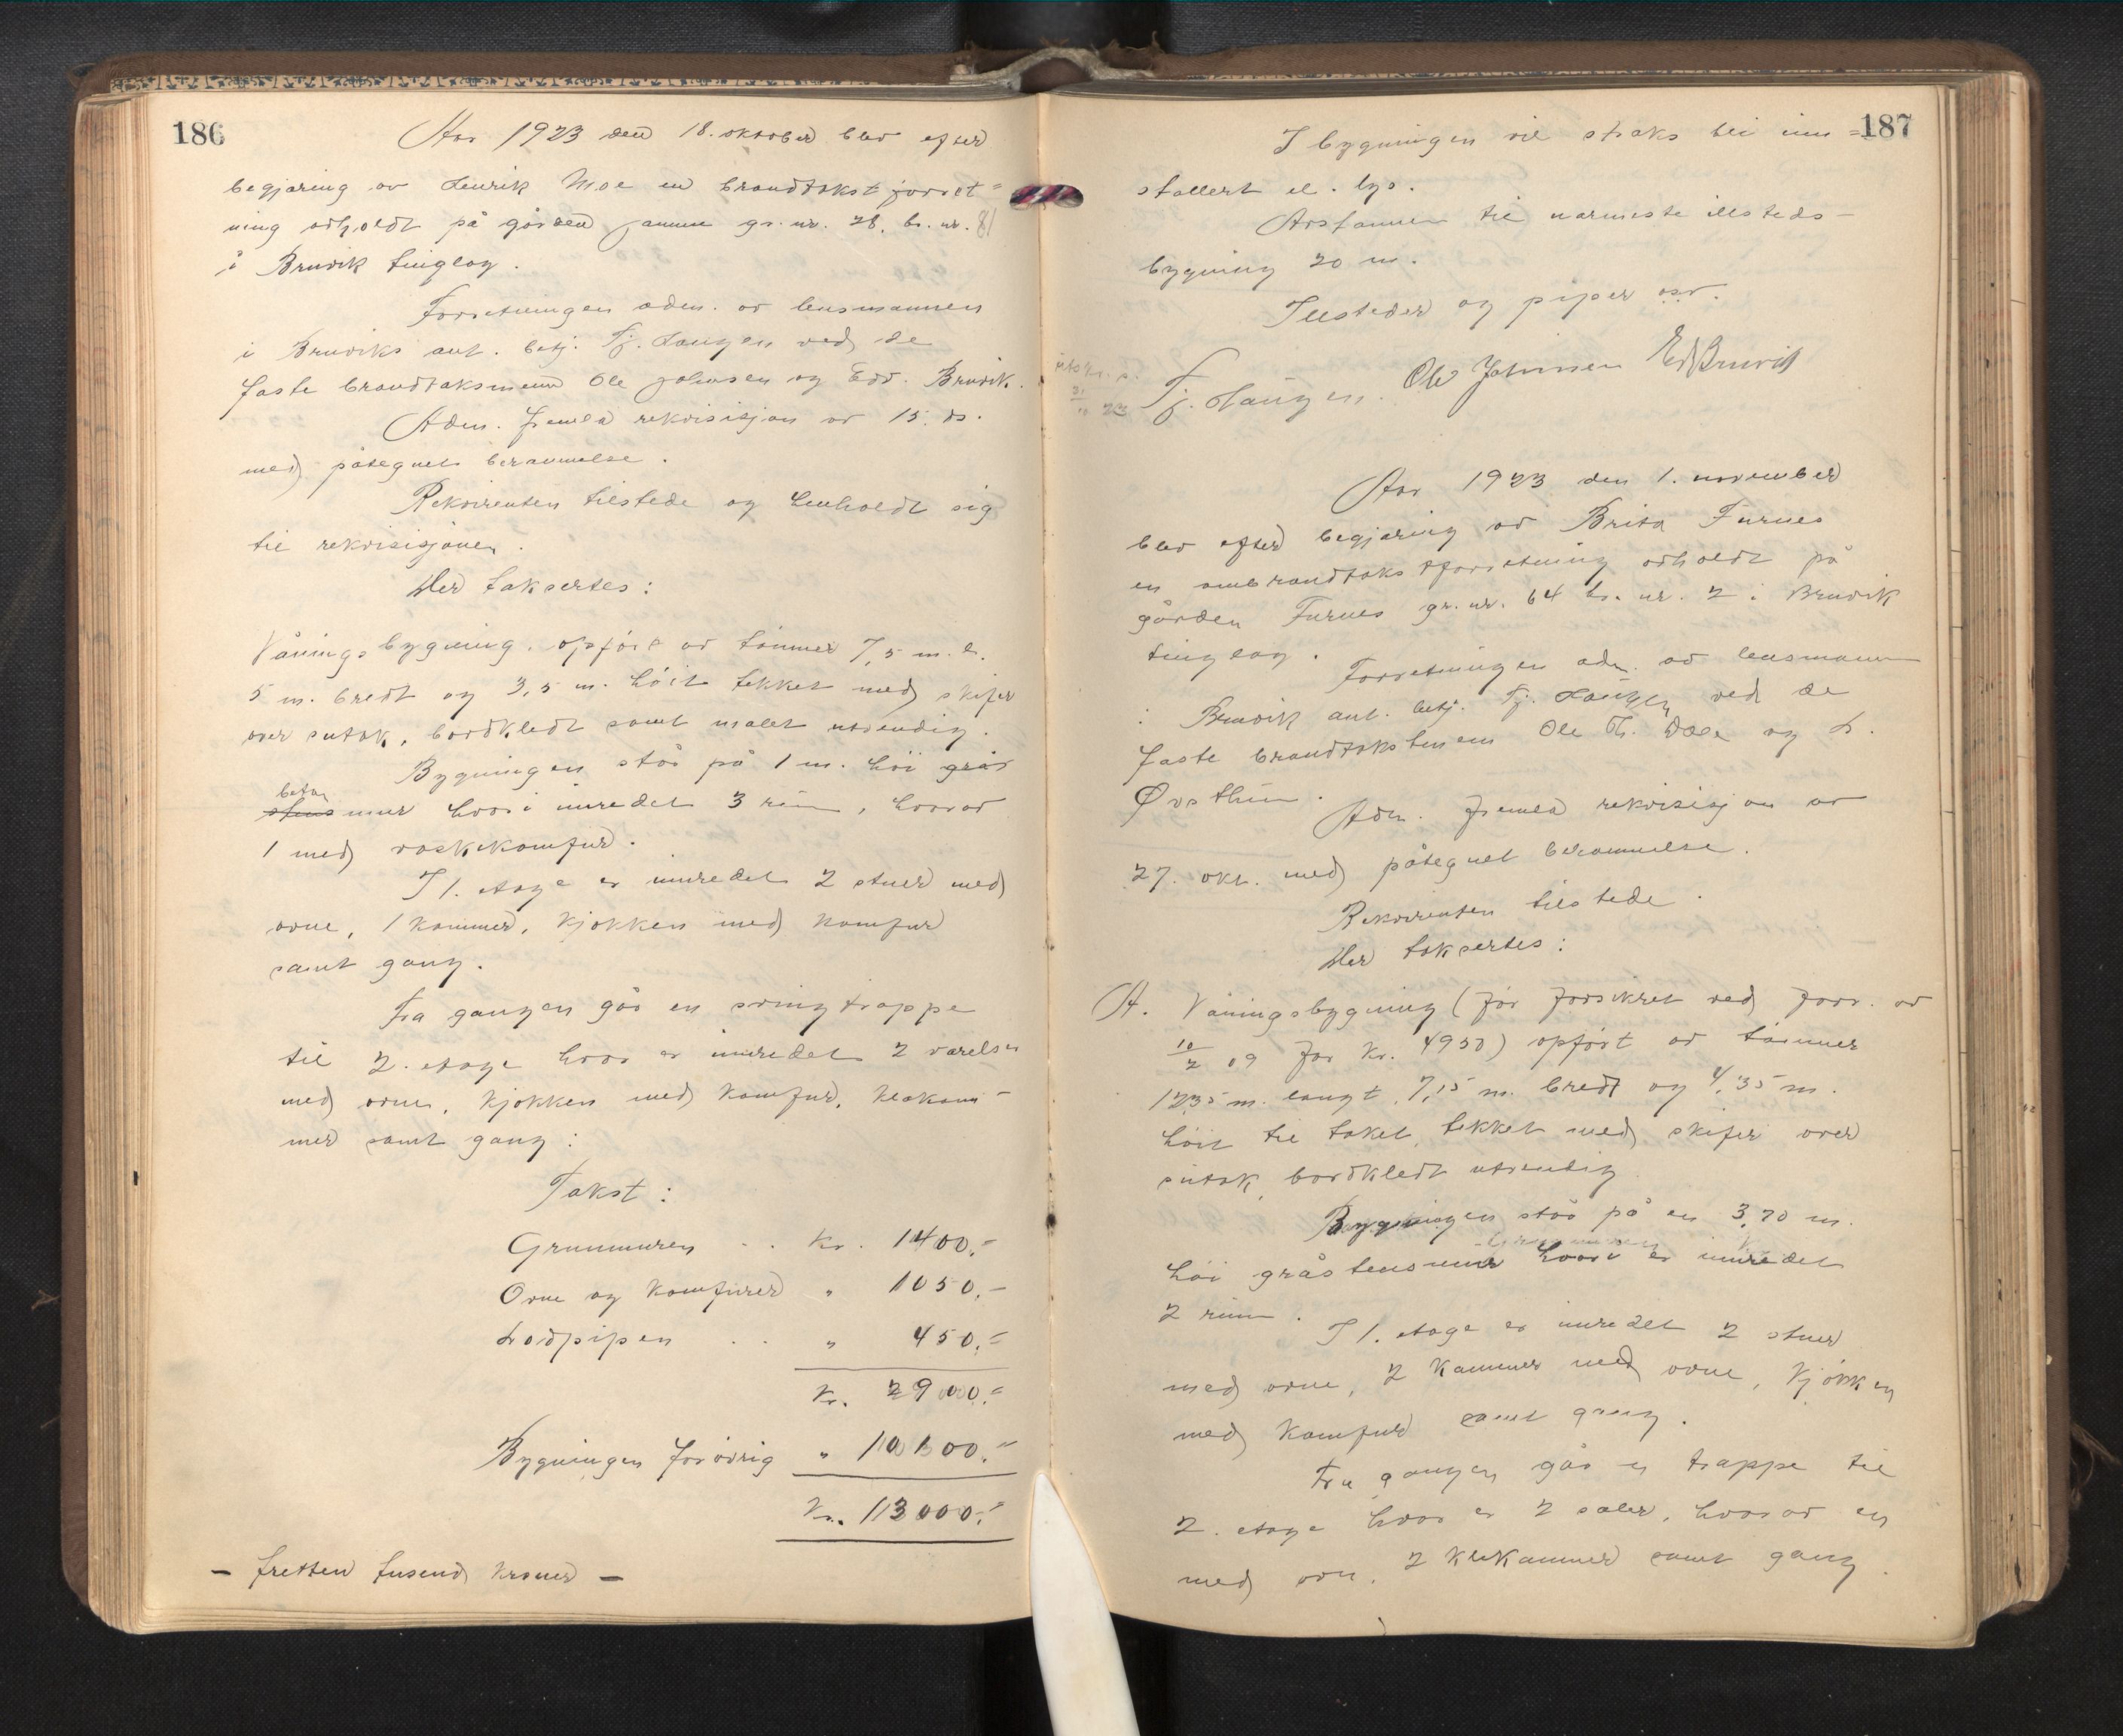 186
Aar 1923 den 18. oktober blev efter
begjæring av Henrik Moe en brandtakstforret=
ning avholdt på gården Jamne gr. nr. 28, br. nr. 81
i Bruvik tinglag.
Forretningen adm. av lensmannen
i Bruviks aut. betj. Fj. Langen ved de
faste brandtaksmenn Ole Johnsen og Edv. Bruvik.
Adm. fremla rekvisisjon av 15. ds.
med påtegnet berammelse.
Rekvirenten tilstede og henholdt sig
til rekvisisjonen.
Her taksertes:
Våningsbygning, opført av tømmer 7,5 m. l.
5 m. bredt og 3,5 m. høit tekket med skifer
over sutak, bordkledt samt malet utvendig.
Bygningen står på 1 m. høi grå
beton
stens mur hvori innredet 3 rum, hvorav
1 med vaskekomfur.
I 1. etage er innredet 2 stuer med
ovne, 1 kammer, kjøkken med komfur
samt gang.
Fra gangen går en svingtrappe
til 2. etage hvor er innredet 2 værelser
med ovne, kjøkken med komfur, klækam-
mer samt gang:
Takst:
Grunnmuren . . Kr. 1400,-
Ovne og komfurer " 1050,-
Lodpipen . . " 450,-
Kr. 2900,-
Bygningen forøvrig " 10100,-
Kr. 13000,-
- tretten tusend kroner -
187
I bygningen vil straks bli inn=
stallert el. lys.
Avstanden til nærmeste illsteds-
bygning 20 m.
Illsteder og piper osv.
Fj. Langen. Ole Johnsen Ed Bruvik
31
10 23
Aar 1923 den 1. november
blev efter begjæring av Brita Furnes
en ombrandtakstforretning avholdt på
gården Furnes gr. nr. 64 br. nr. 2 i Bruvik
tinglag.
Forretningen adm. av lensmann
i Bruvik aut. betj. Fj. Langen ved de
faste brandtakstmenn Ole Th. Dale og L.
Øvsthun.
Adm. fremla rekvisisjon av
27. okt. med påtegnet berammelse.
Rekvirenten tilstede.
Her taksertes:
A. Våningsbygning (før forsikret ved forr. av
10
2 09 for kr. 4950) opført av tømmer
12,35 m. langt, 7,15 m. bredt og 4,35 m.
høit til taket, tekket med skifer over
sutak, bordkledt utvendig
Bygningen står på en 3,70 m.
høi gråstensmur hvori er innredet
2 rum.
I 1. etage er innredet 2 stuer
med ovne, 2 kammer med ovne, kjøkken
med komfur samt gang.
Fra gangen går en trappe til
2. etage hvor er 2 saler, hvorav en
med ovn, 2 klækammer samt gang.